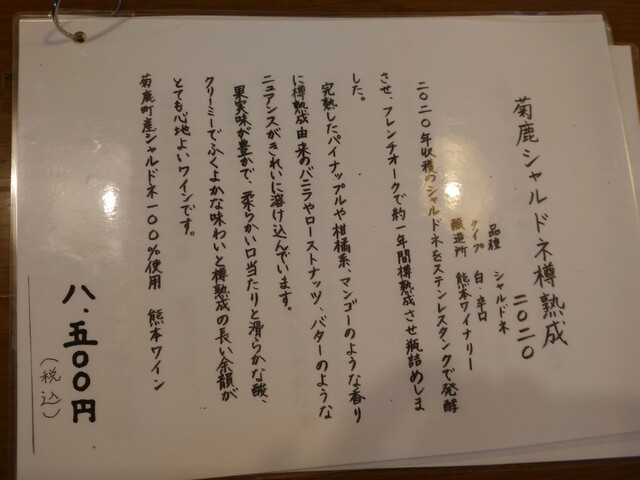 菊鹿シャルドネ樽熟成
二〇二〇
品種 シャルドネ
タイプ 白・辛口
醸造所 熊本ワイナリー
二〇二〇年収穫のシャルドネをステンレスタンクで発酵
させ、フレンチオークで約一年間樽熟成させ瓶詰めしま
した。
完熟したパイナップルや柑橘系、マンゴーのような香り
に樽熟成由来のバニラやローストナッツ、バターのような
ニュアンスがきれいに溶け込んでいます。
果実味が豊かで、柔らかい口当たりと滑らかな酸、
クリーミーでふくよかな味わいと樽熟成の長い余韻が
とても心地よいワインです。
菊鹿町産シャルドネ一〇〇%使用 熊本ワイン
八、五〇〇円
(税込)